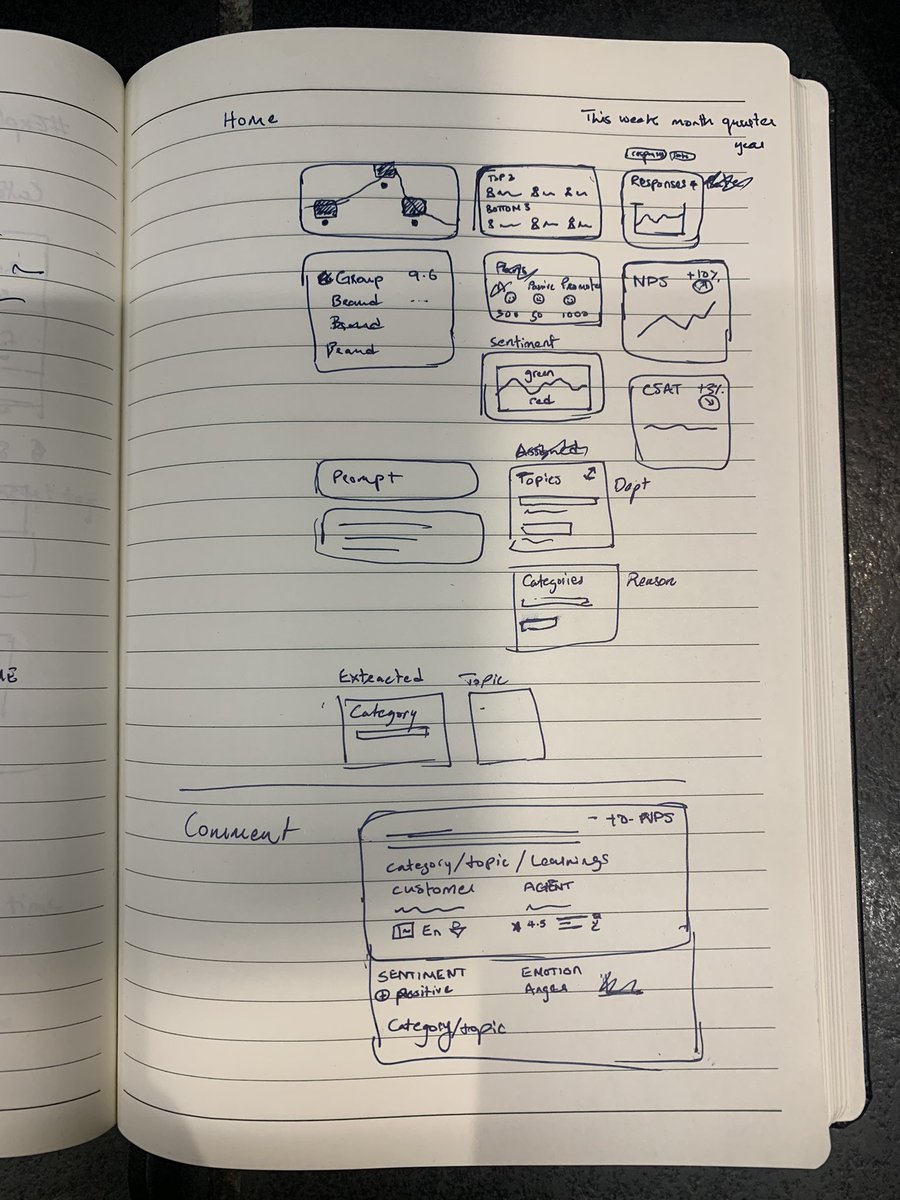 Home
This week month quarter
year
Responses
TOP 3
BOTTOM 3
Group 9.6
Brand ...
Brand
Brand
Passive Promoter
300 50 1000
NPS +10%
sentiment
green
red
CSAT +3%
Assigned
Prompt
Topics
Dept
Categories
Reason
Extracted
Topic
Category
Comment
NPS
category/topic/Learnings
customer AGENT
En 4.5
SENTIMENT EMOTION
positive Anger
Category/topic